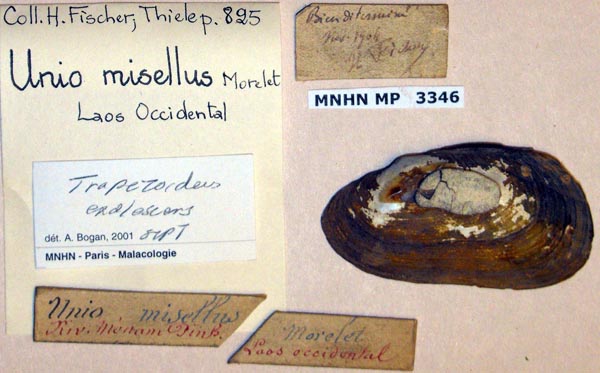 Coll. H. Fischer, Thiele p. 825
Unio misellus Morelet
Laos Occidental
Trapezoideus
exolescens
dét. A. Bogan, 2001
MNHN - Paris - Malacologie
Bien déterminé
Nov. 1904
H.
MNHN MP 3346
Unio misellus
Riv. Ménam Pink.
Morelet
Laos occidental